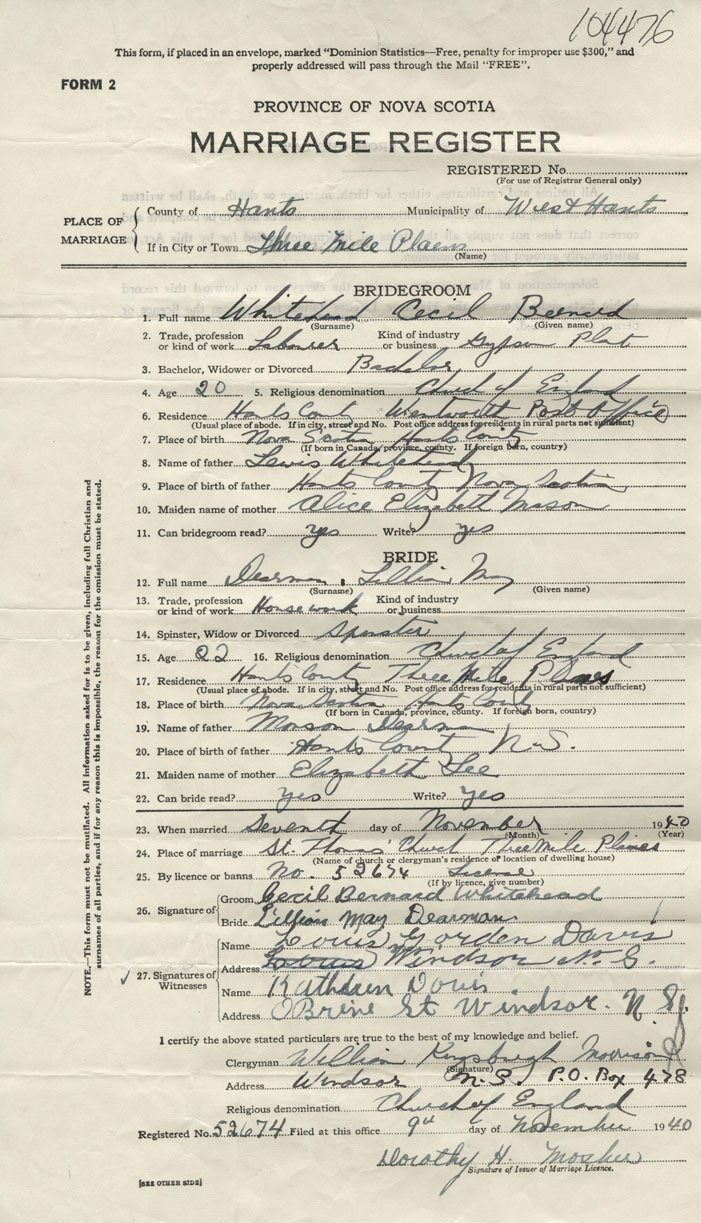 104476
This form, if placed in an envelope, marked "Dominion Statistics—Free, penalty for improper use $300," and
properly addressed will pass through the Mail "FREE".
FORM 2
PROVINCE OF NOVA SCOTIA
MARRIAGE REGISTER
REGISTERED No.
(For use of Registrar General only)
PLACE OF MARRIAGE
County of Hants Municipality of West Hants
If in City or Town Three Mile Plains
(Name)
BRIDEGROOM
1. Full name Whitehead Cecil Bernard
(Surname) (Given name)
2. Trade, profession or kind of work Labourer Kind of industry or business Gypsum Plant
3. Bachelor, Widower or Divorced Bachelor
4. Age 20 5. Religious denomination Church of England
6. Residence Hants County Wentworth Post Office
(Usual place of abode. If in city, street and No. Post office address for residents in rural parts not sufficient)
7. Place of birth Nova Scotia Hants County
(If born in Canada, province, county. If foreign born, country)
8. Name of father Lewis Whitehead
9. Place of birth of father Hants County Nova Scotia
10. Maiden name of mother Alice Elizabeth Mason
11. Can bridegroom read? yes Write? yes
BRIDE
12. Full name Dearman, Lillian May
(Surname) (Given name)
13. Trade, profession or kind of work Housework Kind of industry or business
14. Spinster, Widow or Divorced Spinster
15. Age 22 16. Religious denomination Church of England
17. Residence Hants County Three Mile Plaines
(Usual place of abode. If in city, street and No. Post office address for residents in rural parts not sufficient)
18. Place of birth Nova Scotia Hants County
(If born in Canada, province, county. If foreign born, country)
19. Name of father Dearman
20. Place of birth of father Hants County N.S.
21. Maiden name of mother Elizabeth Lee
22. Can bride read? yes Write? yes
23. When married Seventh day of November 1940
(Month) (Year)
24. Place of marriage St. Thomas' Church Three Mile Plaines
(Name of church or clergyman's residence or location of dwelling house)
25. By licence or banns No. 52674 License
(If by licence, give number)
26. Signature of
Groom Cecil Bernard Whitehead
Bride Lillian May Dearman.
27. Signatures of Witnesses
Name Louis Gorden Davis
Address Windsor N.S.
Name Kathleen Davis
Address OBrine St Windsor. N.S.
I certify the above stated particulars are true to the best of my knowledge and belief.
Clergyman William Kingsburgh Morrison
(Signature)
Address Windsor N.S. P.O. Box 478
Religious denomination Church of England
Registered No. 52674 Filed at this office 9th day of November 1940
Dorothy H. Mosher
Signature of Issuer of Marriage Licence.
[SEE OTHER SIDE]
NOTE.—This form must not be mutilated. All information asked for is to be given, including full Christian and
surnames of all parties, and if for any reason this is impossible, the reason for the omission must be stated.